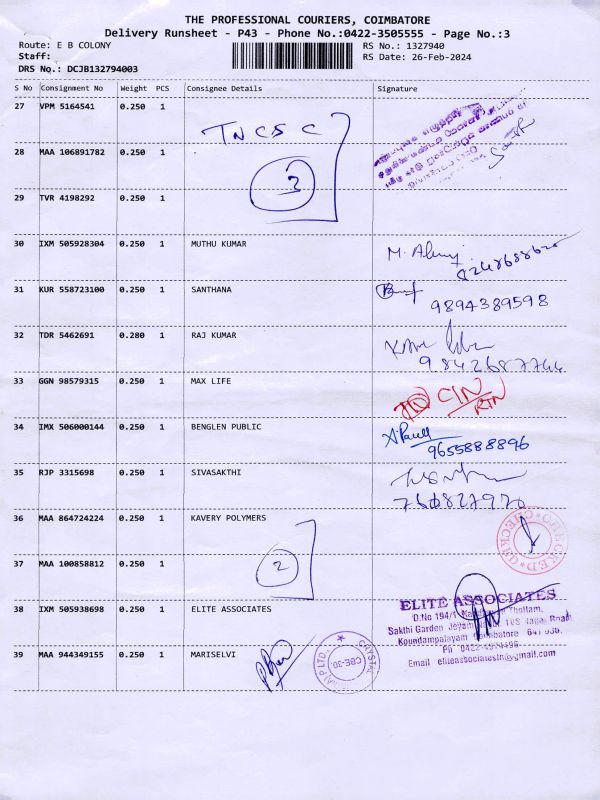 THE PROFESSIONAL COURIERS, COIMBATORE
Delivery Runsheet - P43 - Phone No.:0422-3505555 - Page No.:3
Route: E B COLONY
Staff:
DRS No.: DCJB132794003
RS No.: 1327940
RS Date: 26-Feb-2024
S No Consignment No Weight PCS Consignee Details Signature
27 VPM 5164541 0.250 1
TNCSC
28 MAA 106891782 0.250 1
29 TVR 4198292 0.250 1
30 IXM 505928304 0.250 1 MUTHU KUMAR
31 KUR 558723100 0.250 1 SANTHANA
9894389598
32 TDR 5462691 0.280 1 RAJ KUMAR
9842687744
33 GGN 98579315 0.250 1 MAX LIFE
CIN
RTN
34 IMX 506000144 0.250 1 BENGLEN PUBLIC
9655888896
35 RJP 3315698 0.250 1 SIVASAKTHI
36 MAA 864724224 0.250 1 KAVERY POLYMERS
CHECKED
37 MAA 100858812 0.250 1
2
38 IXM 505938698 0.250 1 ELITE ASSOCIATES
ELITE ASSOCIATES
D.No 194/1 Thottam,
Sakthi Garden
Koundampalayam Coimbatore 641 030.
Email eliteassociatesin@gmail.com
39 MAA 944349155 0.250 1 MARISELVI
CRYSTAL
CBE-30.